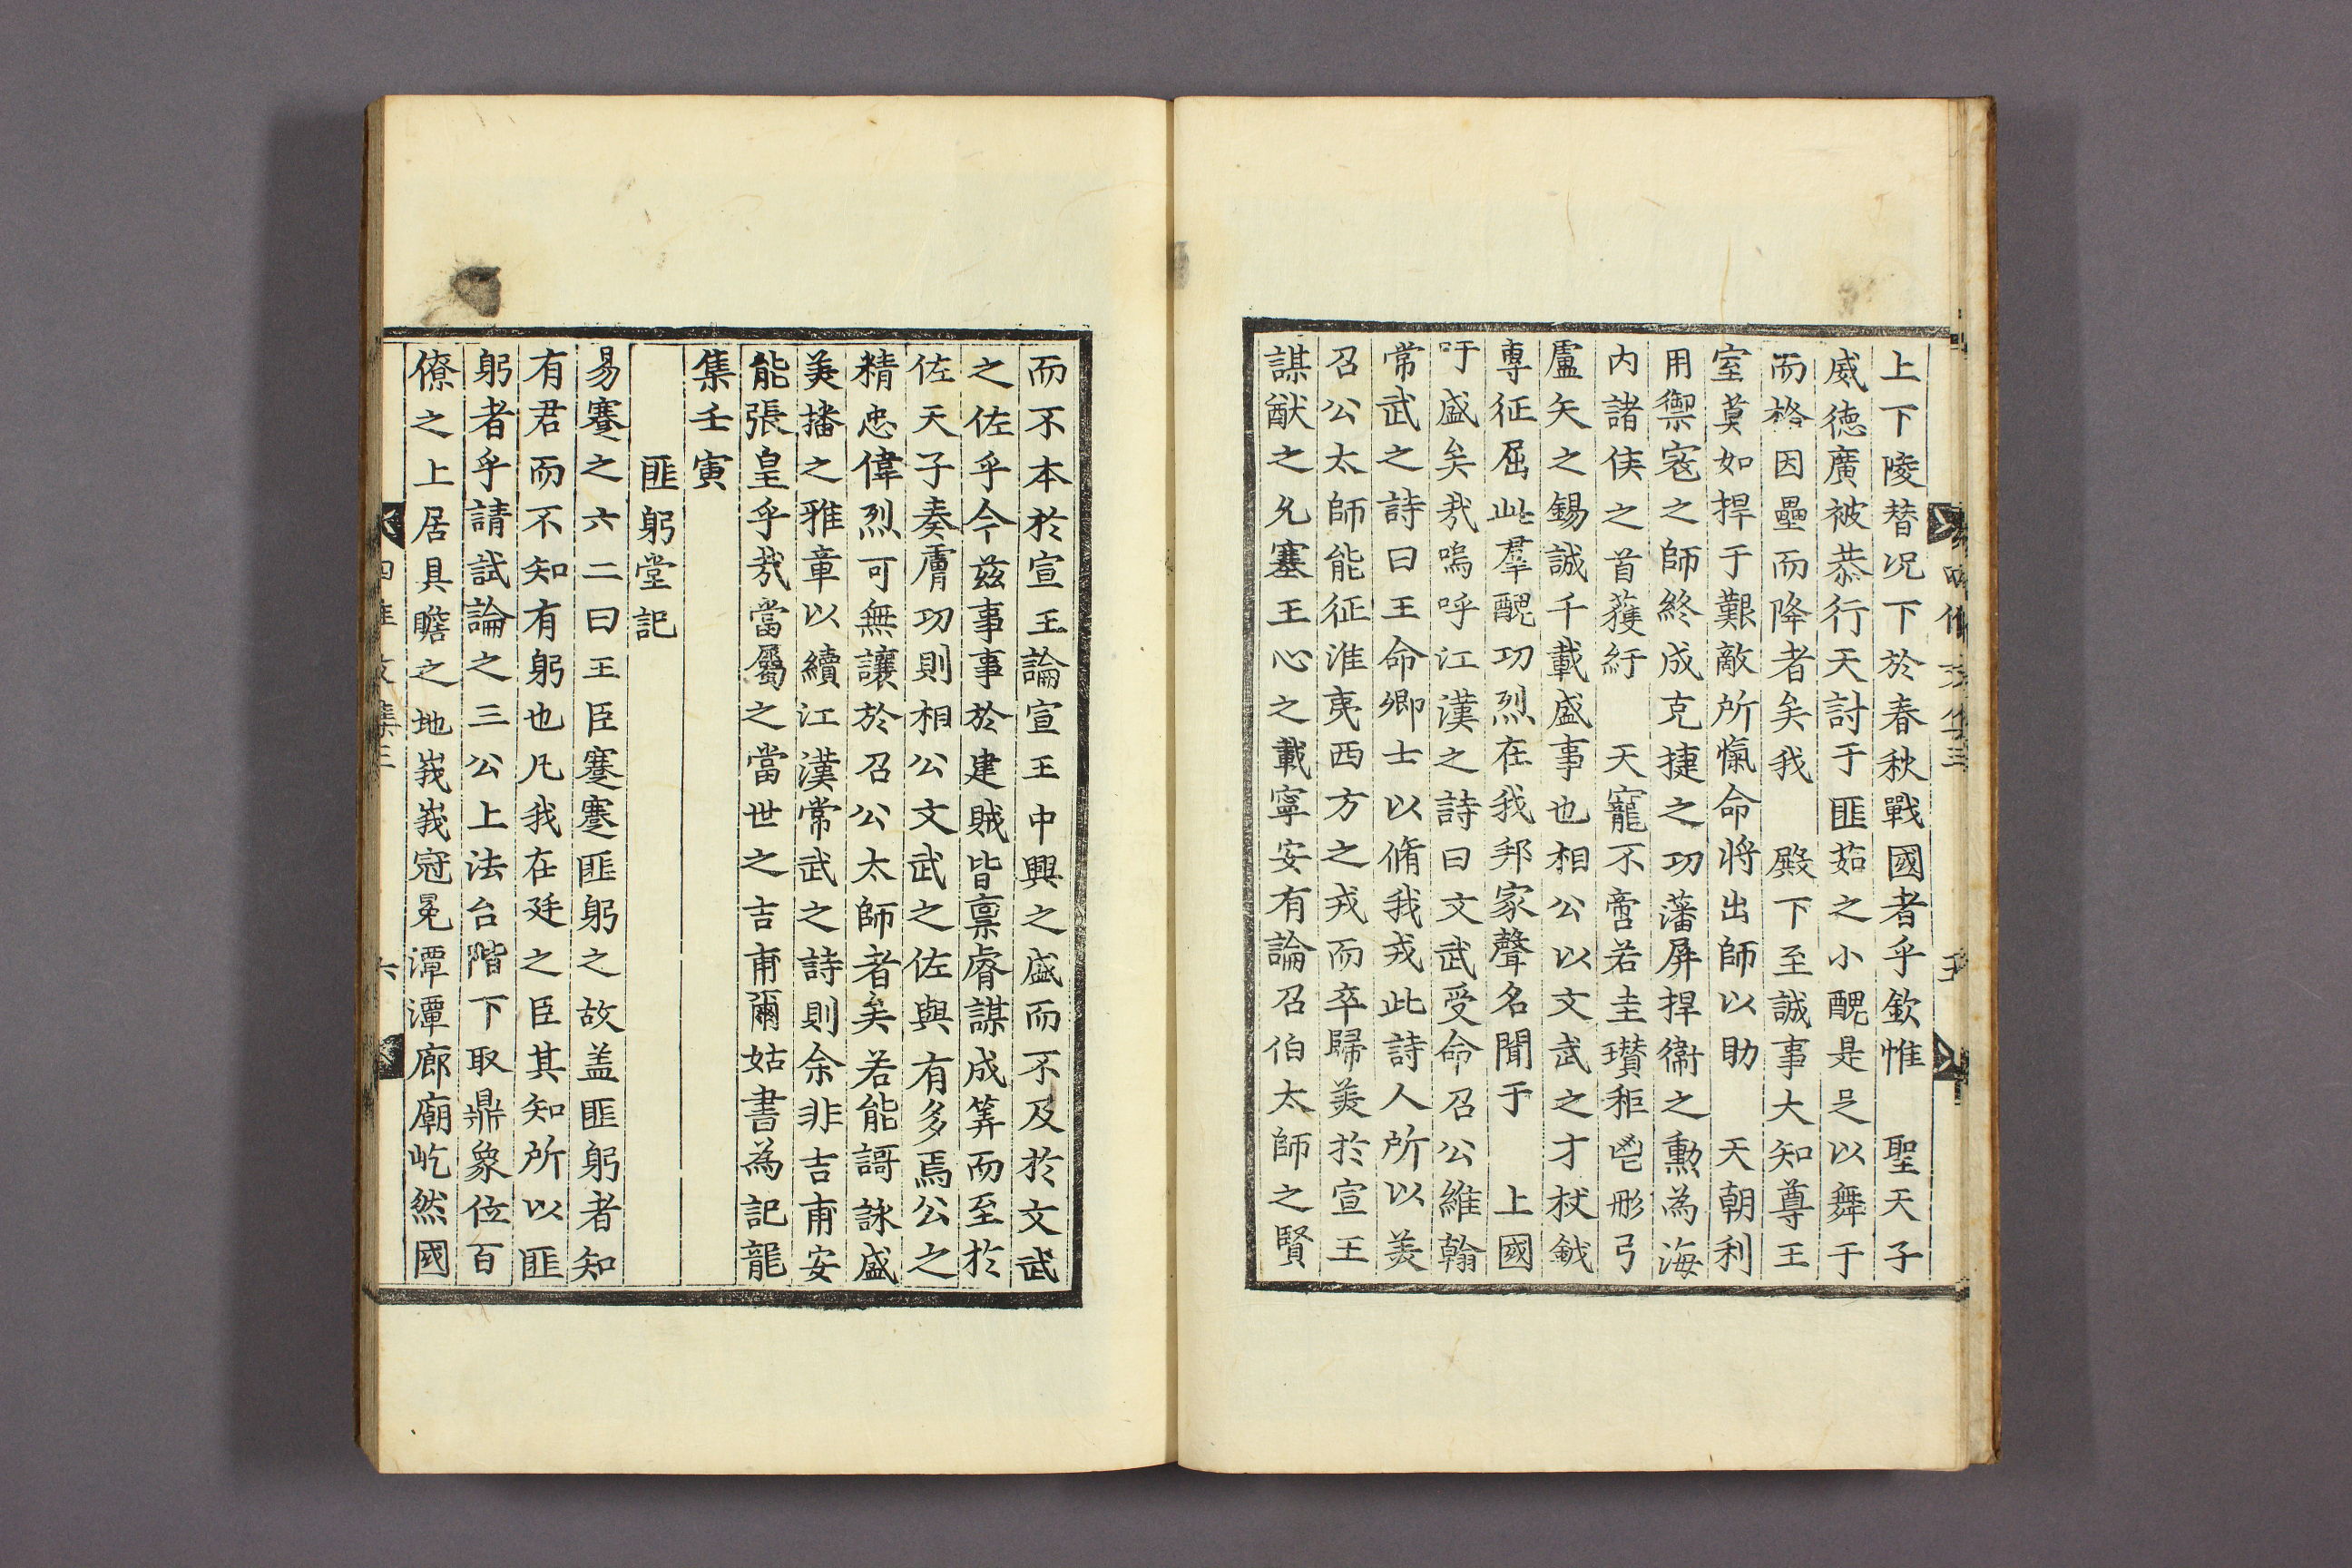 上下陵替况下於春秋戰國者乎欽惟 聖天子
威德廣被恭行天討于匪茹之小醜是足以舞干
而格因壘而降者矣我 殿下至誠事大知尊王
室莫如捍于艱敵所愾命將出師以助 天朝利
用禦寇之師終成克捷之功藩屏捍衛之勳為海
內諸侯之首獲紆 天寵不啻若圭瓚秬鬯彤弓
盧矢之錫誠千載盛事也相公以文武之才杖鉞
專征屈此羣醜功烈在我邦家聲名聞于 上國
吁盛矣㢤嗚呼江漢之詩曰文武受命召公維翰
常武之詩曰王命卿士以脩我戎此詩人所以羙
召公太師能征淮夷西方之戎而卒歸羙於宣王
謀猷之允塞王心之載寧安有論召伯太師之賢
而不本於宣王論宣王中興之盛而不及於文武
之佐乎今兹事事於建賊皆禀睿謀成筭而至於
佐天子奏膚功則相公文武之佐與有多焉公之
精忠偉烈可無讓於召公太師者矣若能謌詠盛
羙播之雅章以續江漢常武之詩則余非吉甫安
能張皇乎㢤當屬之當世之吉甫爾姑書為記龍
集壬寅
匪躬堂記
易蹇之六二曰王臣蹇蹇匪躬之故盖匪躬者知
有君而不知有躬也凡我在廷之臣其知所以匪
躬者乎請試論之三公上法台階下取鼎象位百
僚之上居具瞻之地峩峩冠冕潭潭廊廟屹然國
六